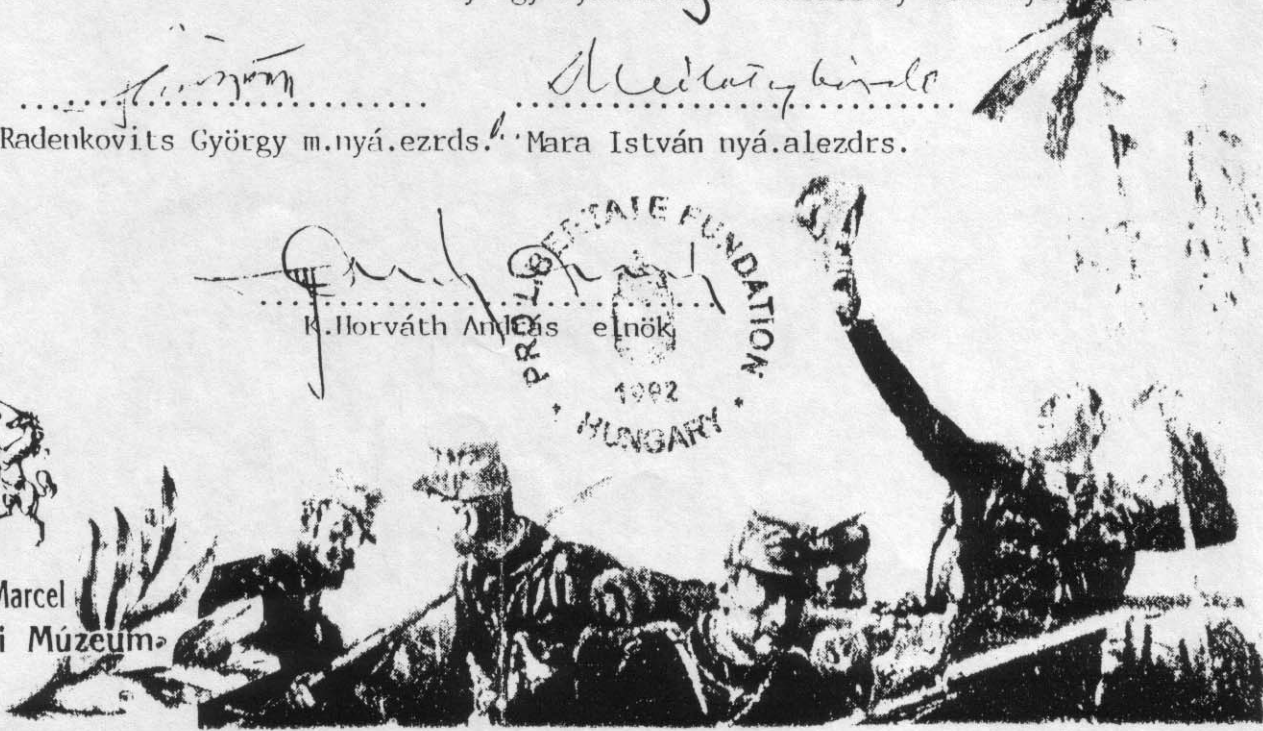 Radenkovits György m.nyá.ezrds.
Mara István nyá.alezdrs.
K.Horváth András elnök
PRO LIBERTATE FUNDATION
1992
* HUNGARY *
Marcel
i Múzeum